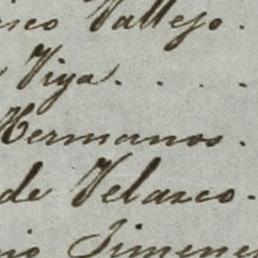 isco Vallejo.
Viya. . . .
Hermanos.
de Velasco.
nio Jimenez